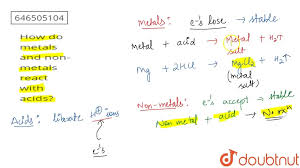 646505104
How do
metals
and non-
metals
react
with
acids?
Metals: e⁻'s lose → stable
metal + acid → Metal salt + H₂↑
Mg + 2HCl → MgCl₂ + H₂↑
(metal salt)
Non-metals: e⁻'s accept → stable
Non metal + acid → No rxⁿ
Acids: liberate H⊕ ions
e⁻'s
doubtnut